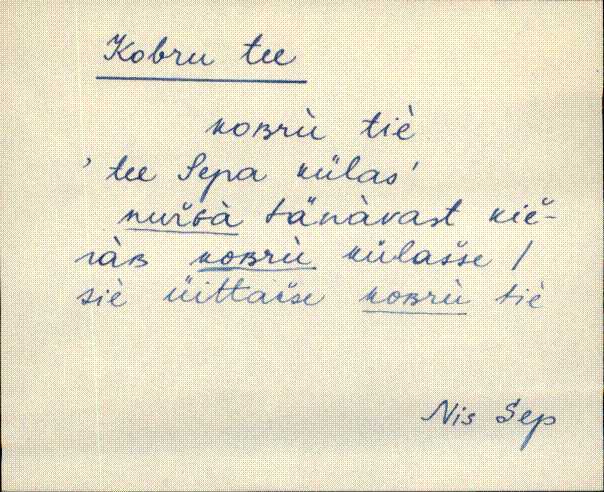 Kobru tee
koʙrù tiè
'tee Sepa külas'
tänàvast kiě-
ràʙ koʙrù külašse /
siè üittaisse koʙrù tiè
Nis Sep